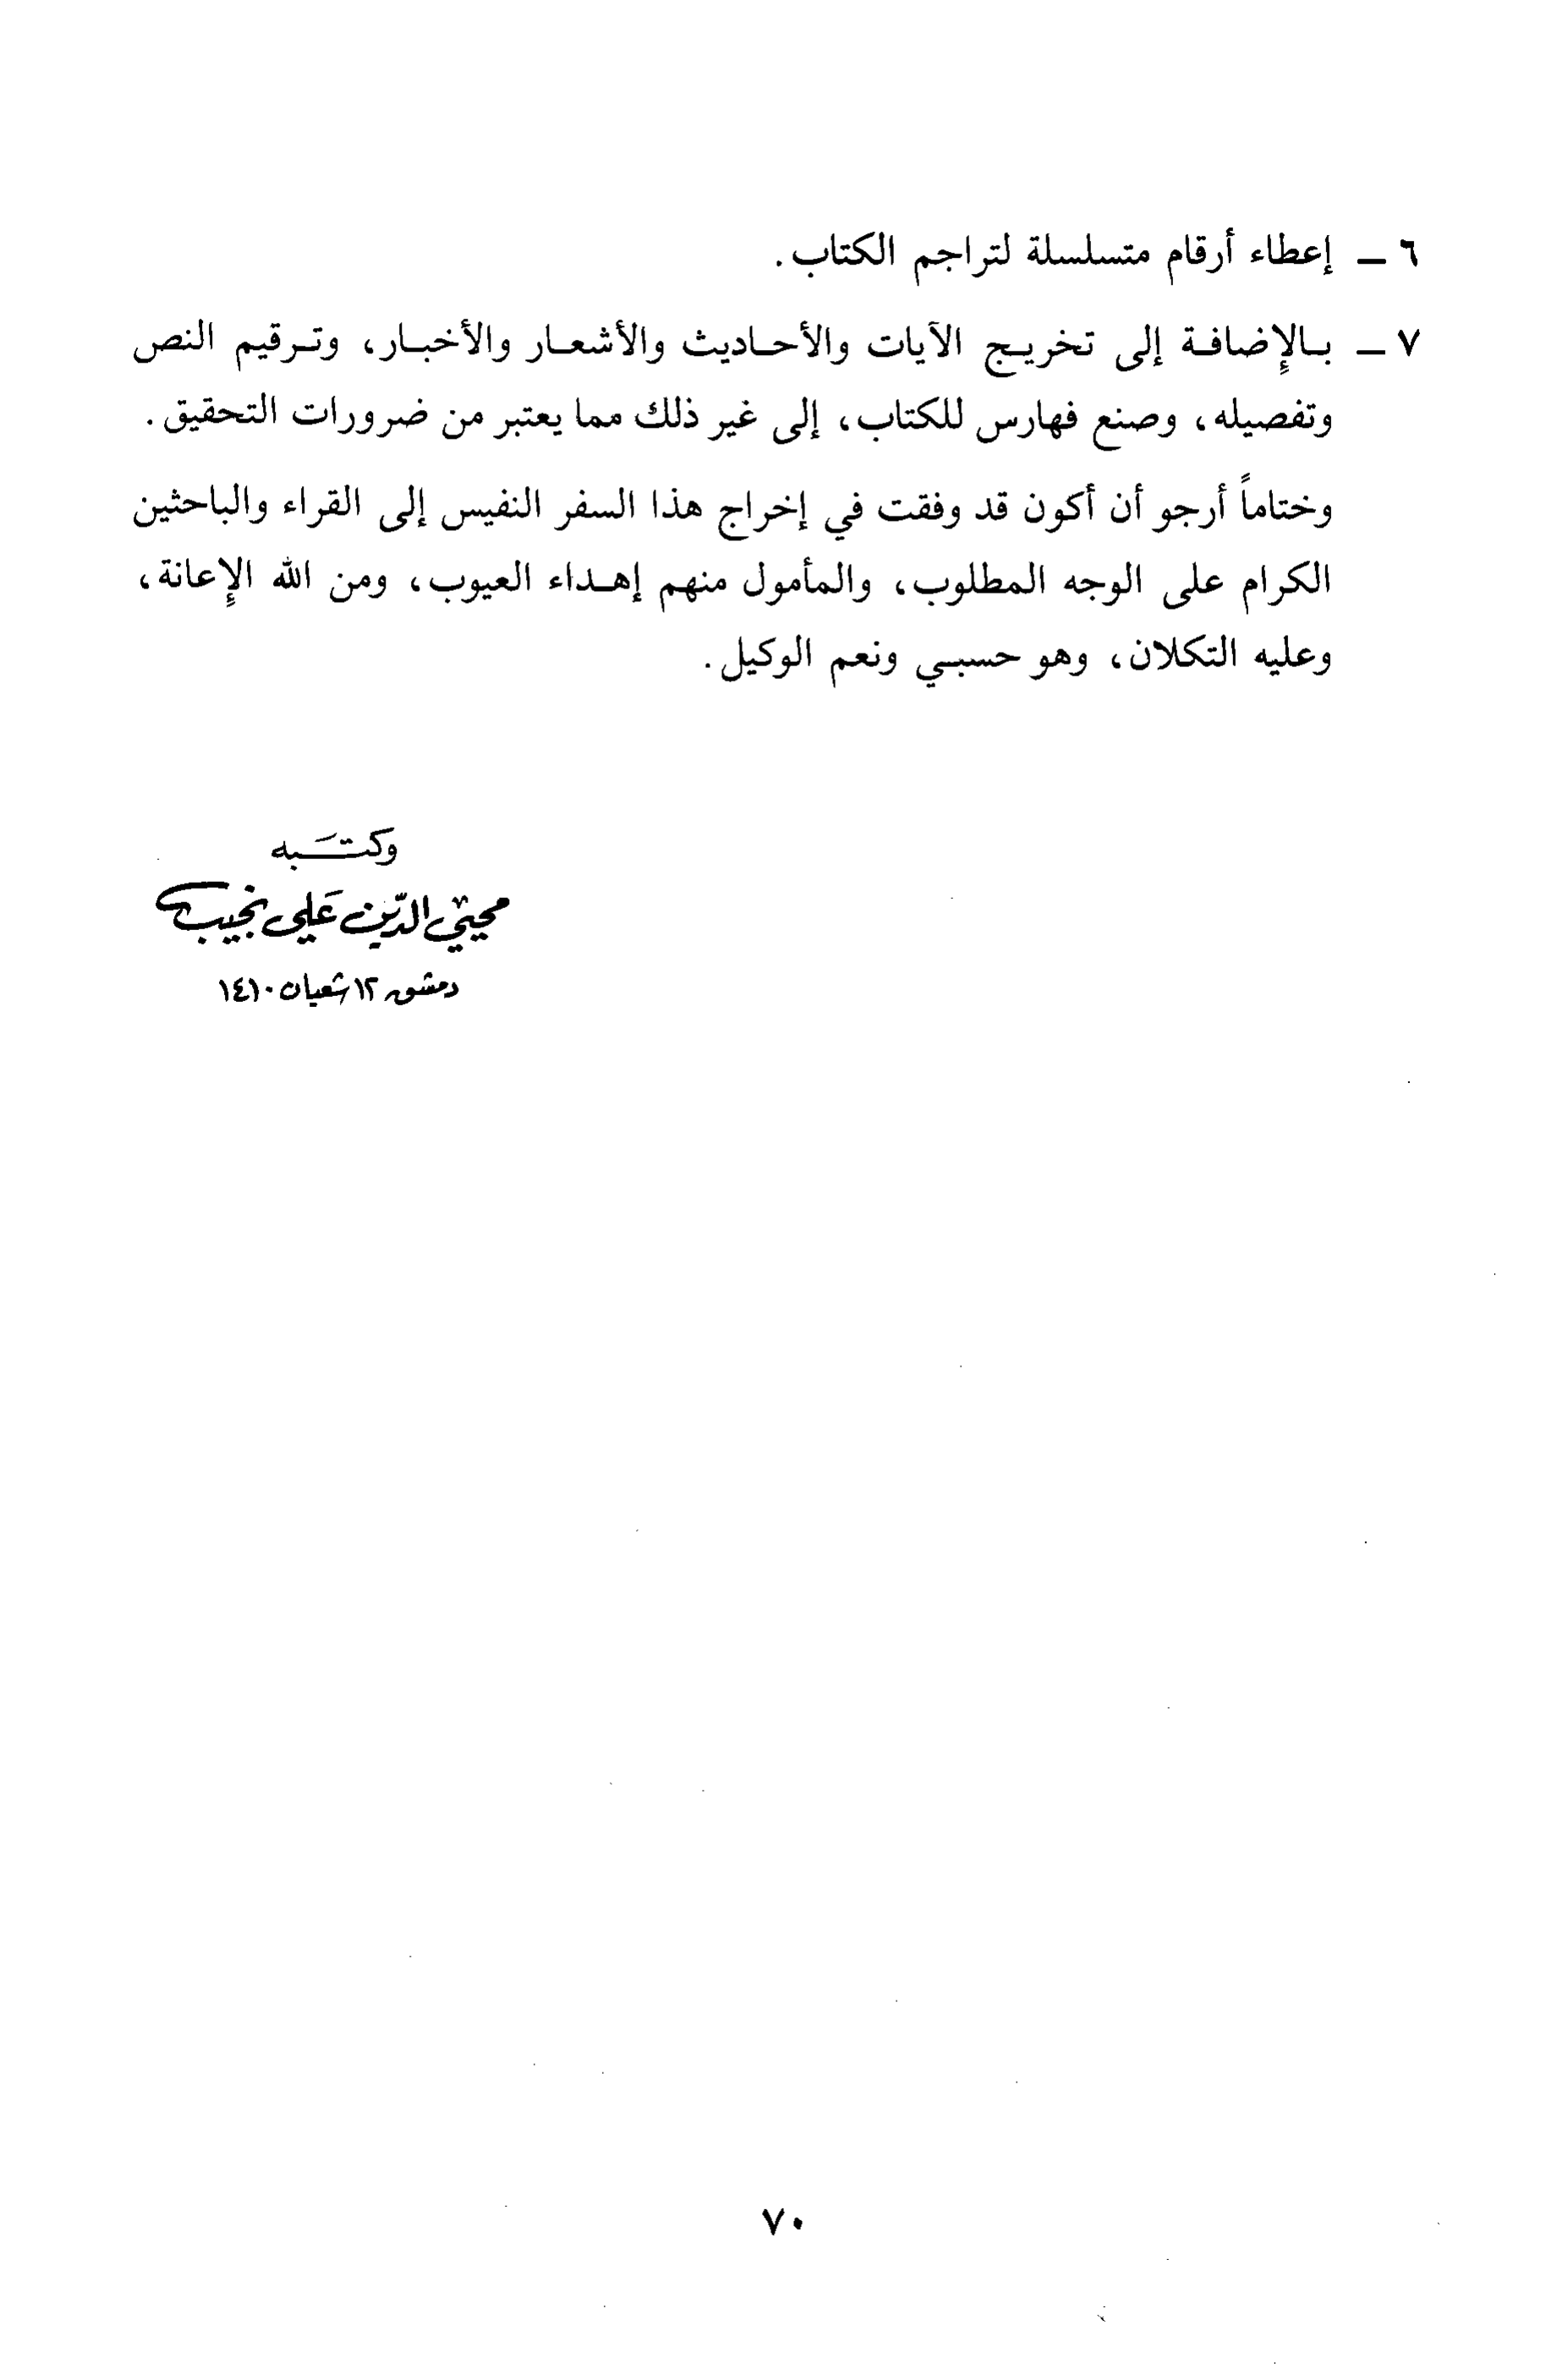 ٦ — إعطاء أرقام متسلسلة لتراجم الكتاب.
٧ — بالإضافة إلى تخريج الآيات والأحاديث والأشعار والأخبار، وترقيم النص
وتفصيله، وصنع فهارس للكتاب، إلى غير ذلك مما يعتبر من ضرورات التحقيق.
وختاماً أرجو أن أكون قد وفقت في إخراج هذا السفر النفيس إلى القراء والباحثين
الكرام على الوجه المطلوب، والمأمول منهم إهداء العيوب، ومن الله الإعانة،
وعليه التكلان، وهو حسبي ونعم الوكيل.
وكتَبه
محيي الدّين عَلي نجيب
دمشق ١٢ شعبان ١٤١٠
٧٠